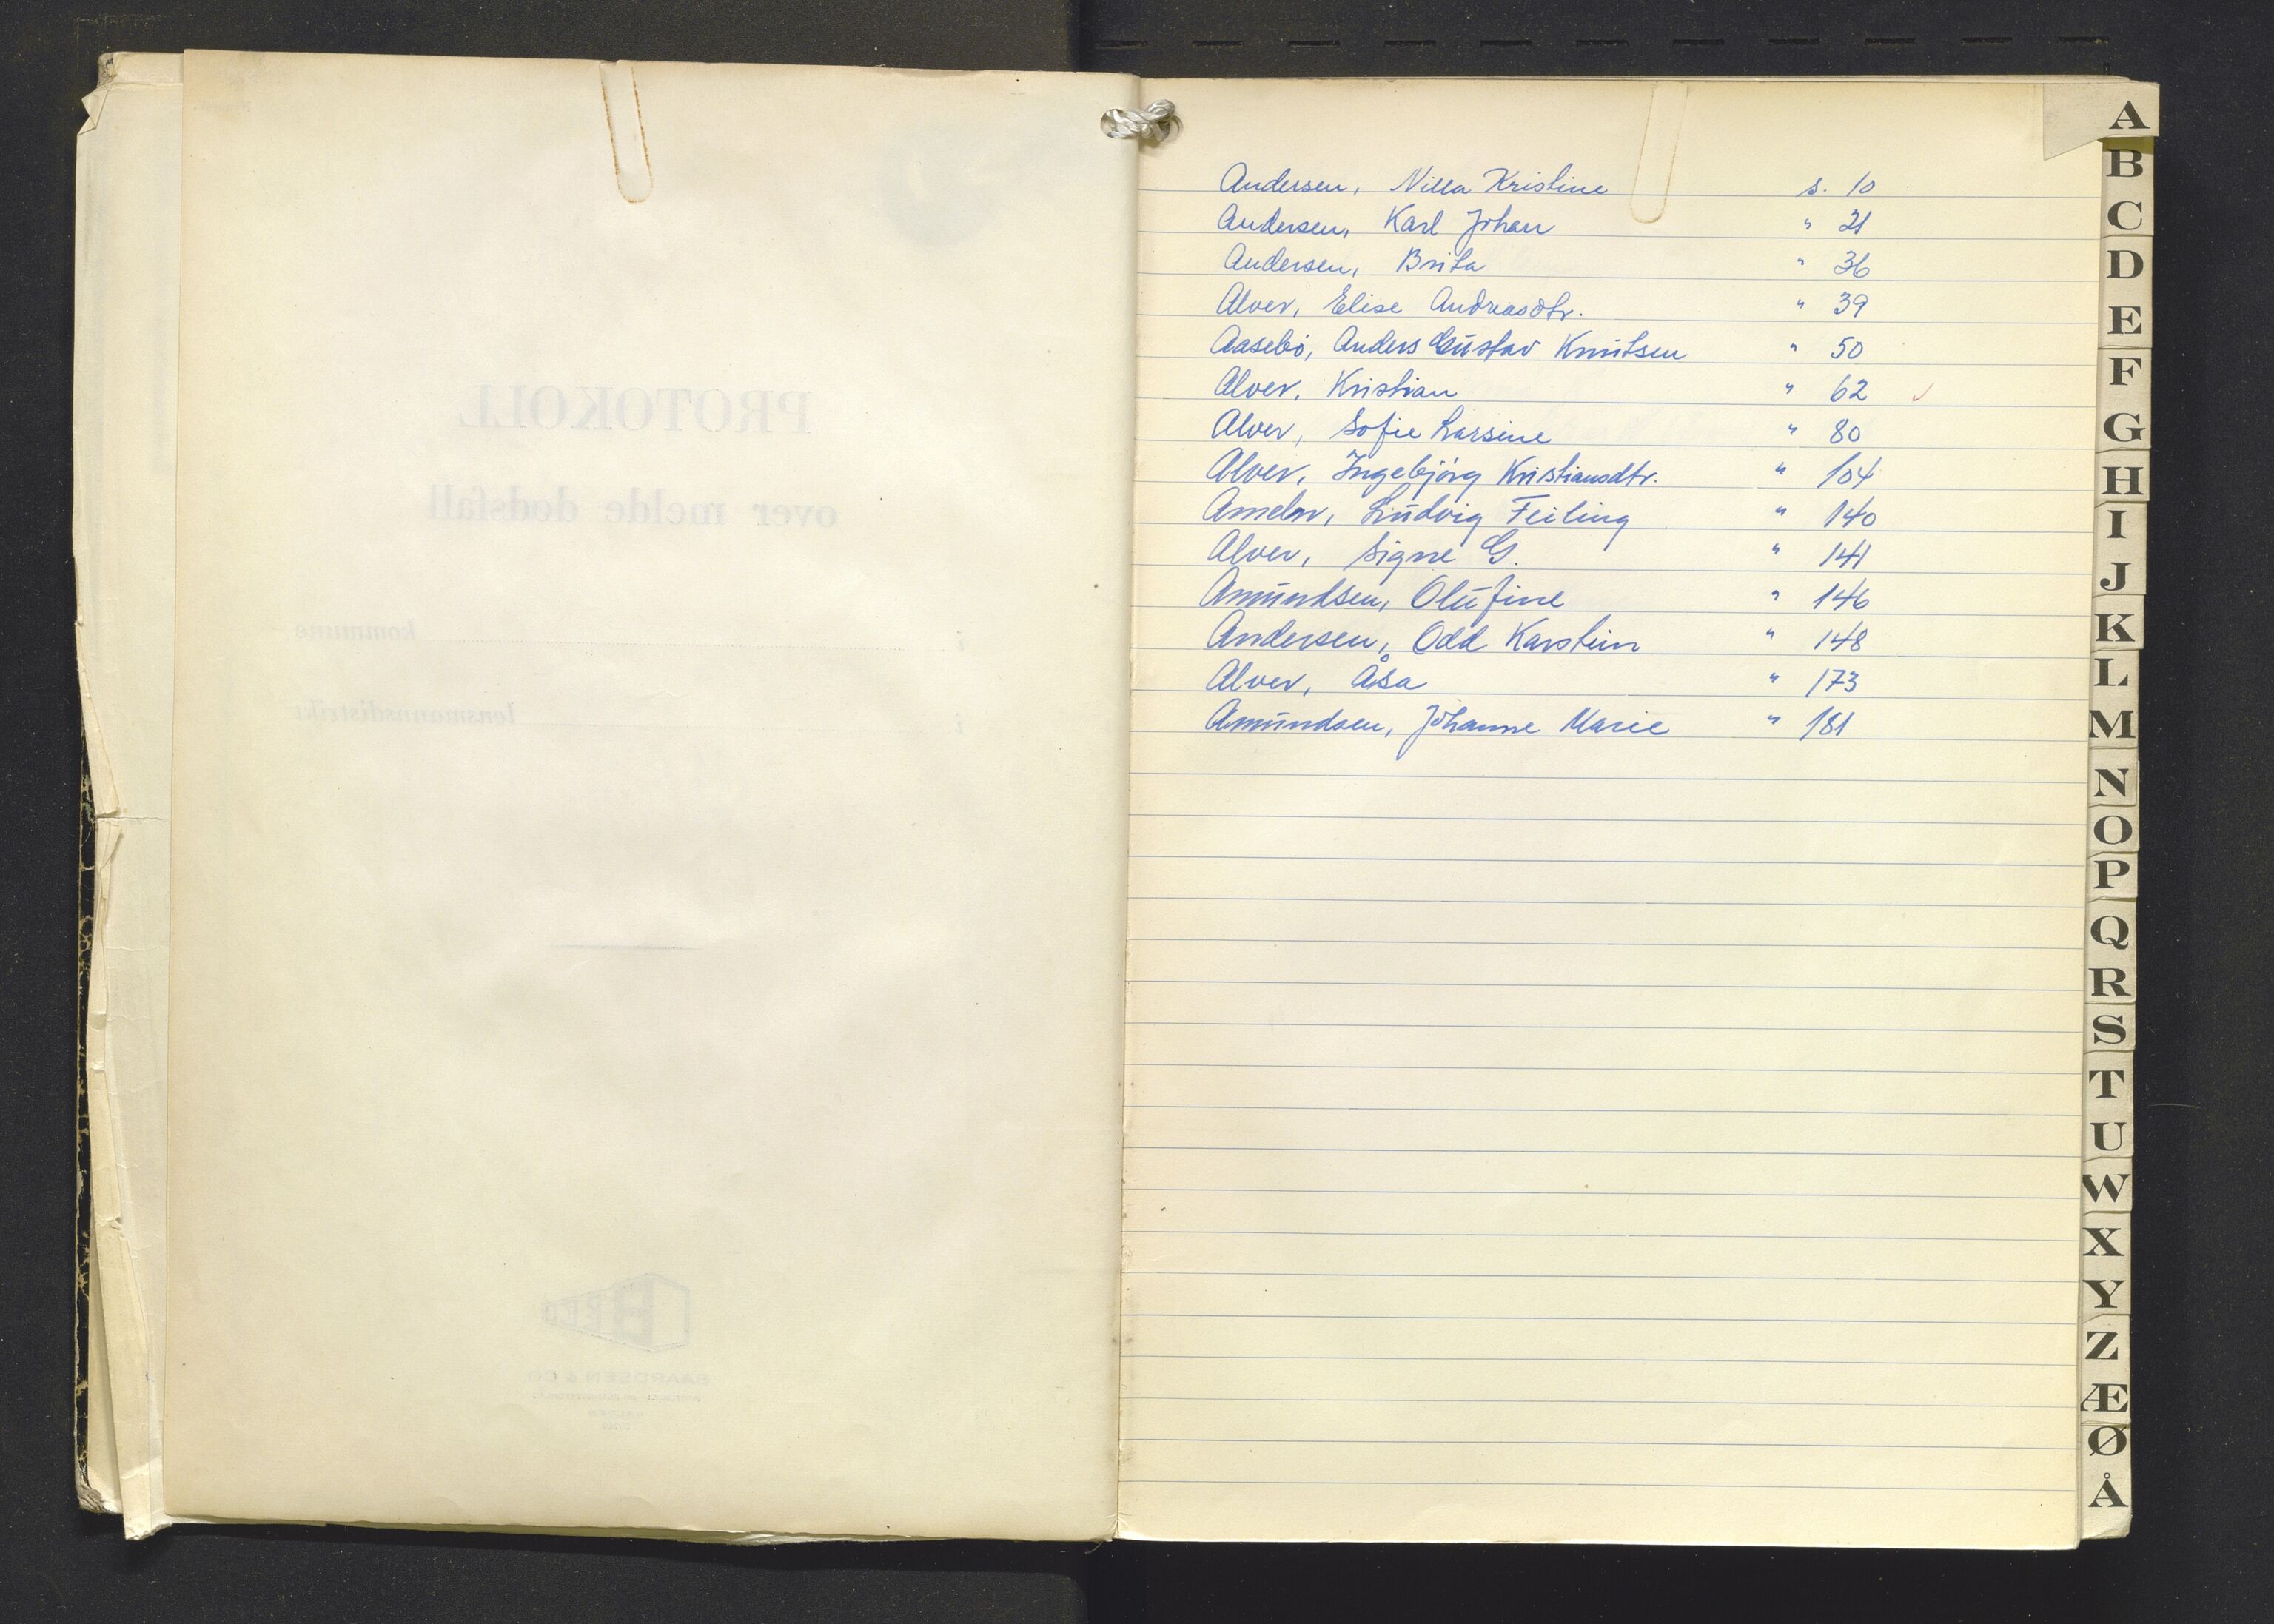 PROTOKOLL
over melde dødsfall
i kommune
i lensmannsdistrikt
BAARDSEN & CO
Andersen, Nilla Kristine s. 10
Andersen, Karl Johan " 21
Andersen, Brita " 36
Alver, Elise Andreasdtr. " 39
Aasebö, Anders Gustav Knutsen " 50
Alver, Kristian " 62 ✓
Alver, Sofie Larsine " 80
Alver, Ingebjörg Kristiansdtr. " 104
Ameln, Ludvig Feiling " 140
Alver, Signe G. " 141
Amundsen, Olufine " 146
Andersen, Odd Karstein " 148
Alver, Åsa " 173
Amundsen, Johanne Marie " 181
A
B
C
D
E
F
G
H
I
J
K
L
M
N
O
P
Q
R
S
T
U
W
X
Y
Z
Æ
Ø
Å